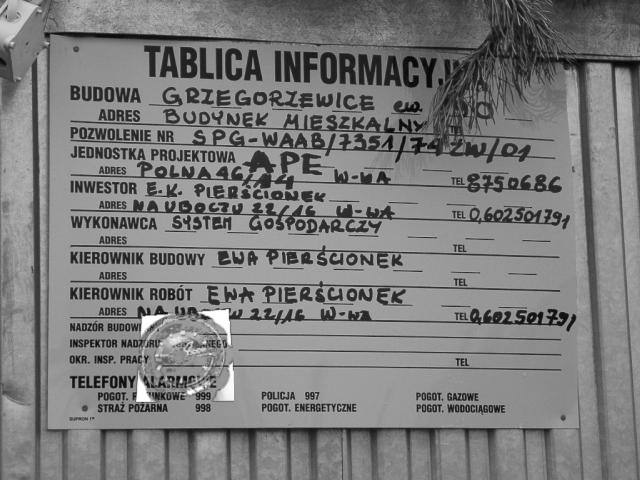 TABLICA INFORMACYJNA
BUDOWA GRZEGORZEWICE ew.
ADRES BUDYNEK MIESZKALNY
POZWOLENIE NR SPG-WAAB/7351/74 ZW/01
JEDNOSTKA PROJEKTOWA APE
ADRES POLNA 46/14 W-WA TEL 8750686
INWESTOR E.K. PIERŚCIONEK
ADRES NA UBOCZU 22/16 W-WA TEL 0,602501791
WYKONAWCA SYSTEM GOSPODARCZY
ADRES TEL
KIEROWNIK BUDOWY EWA PIERŚCIONEK
ADRES TEL
KIEROWNIK ROBÓT EWA PIERŚCIONEK
ADRES NA UBOCZU 22/16 W-WA TEL 0,602501791
NADZÓR
INSPEKTOR NADZORU
OKR. INSP. PRACY TEL
TELEFONY ALARMOWE
POGOT. RATUNKOWE 999 POLICJA 997 POGOT. GAZOWE
STRAŻ POŻARNA 998 POGOT. ENERGETYCZNE POGOT. WODOCIĄGOWE
SUPRON 1